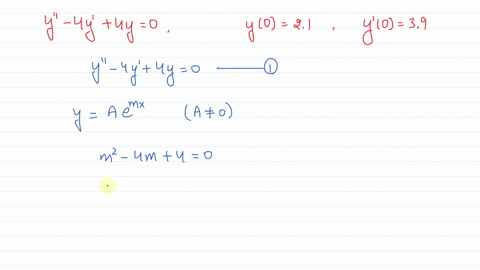 y'' - 4y' + 4y = 0 , y(0) = 2.1 , y'(0) = 3.9
y'' - 4y' + 4y = 0 ——— ①
y = A e^{mx} (A ≠ 0)
m² - 4m + 4 = 0